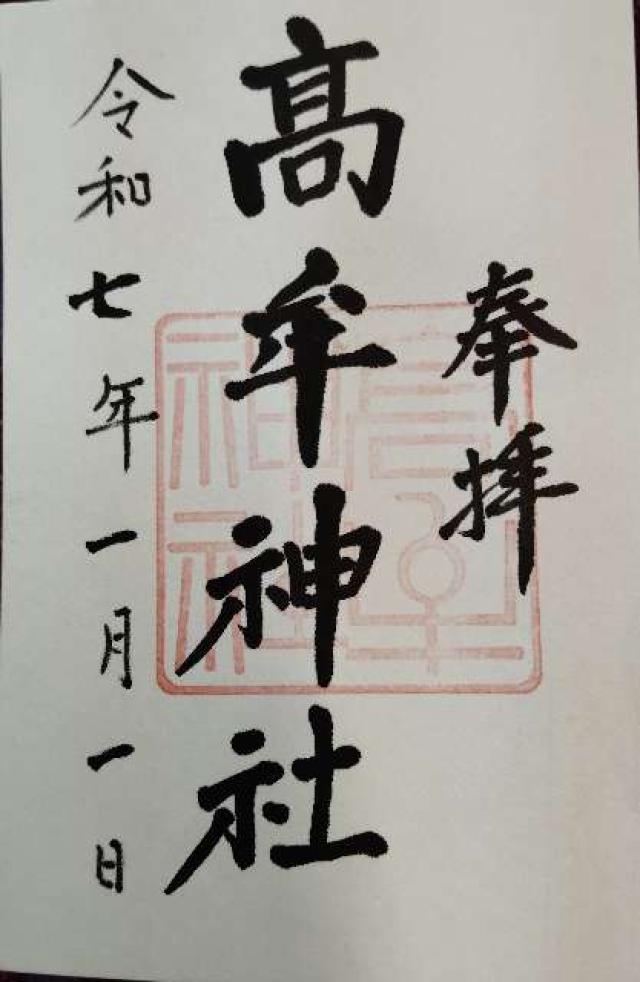 奉拝
髙牟神社
令和七年一月一日
髙牟
神社